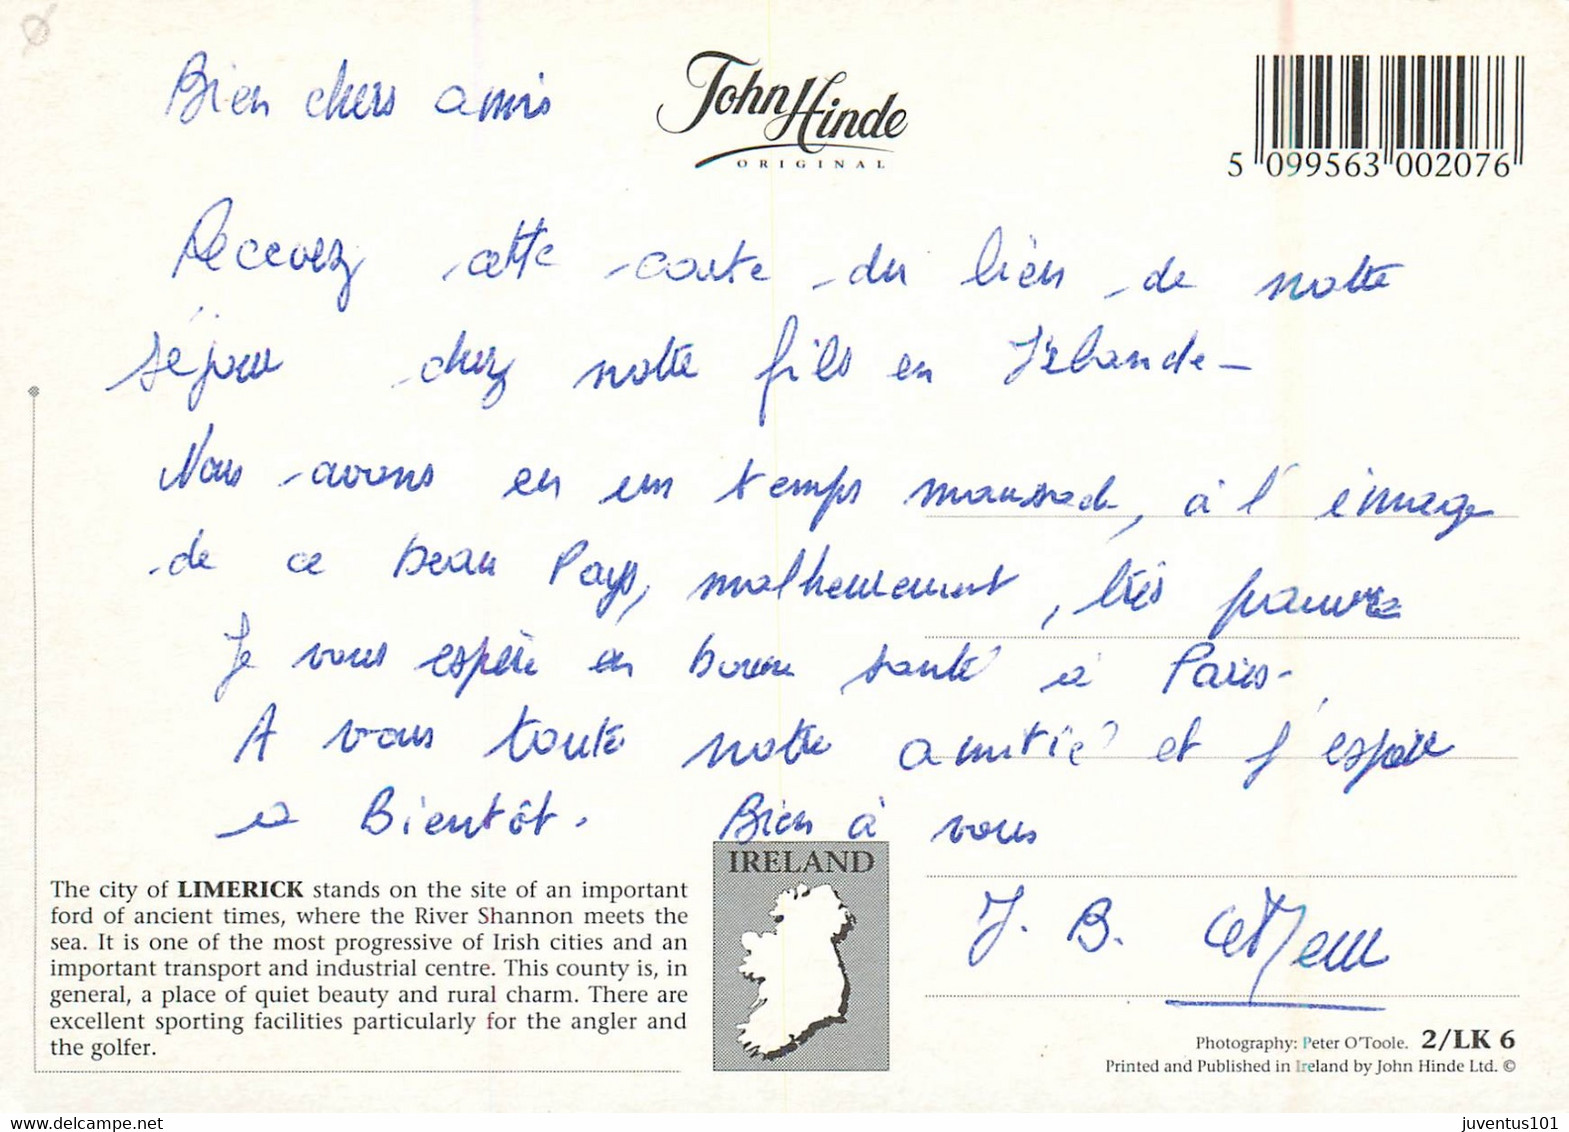 Bien chers amis
John Hinde
ORIGINAL
5 099563 002076
Recevez cette carte du lieu de notre
séjour chez notre fils en Irlande -
Nous avons eu un temps maussade, à l'image
de ce beau Pays, malheureusement, très pauvre
Je vous espère en bonne santé à Paris -
A vous toute notre amitié et j'espère
à Bientôt. Bien à vous
J. B.
IRELAND
The city of LIMERICK stands on the site of an important
ford of ancient times, where the River Shannon meets the
sea. It is one of the most progressive of Irish cities and an
important transport and industrial centre. This county is, in
general, a place of quiet beauty and rural charm. There are
excellent sporting facilities particularly for the angler and
the golfer.
Photography: Peter O'Toole. 2/LK 6
Printed and Published in Ireland by John Hinde Ltd. ©
juventus101